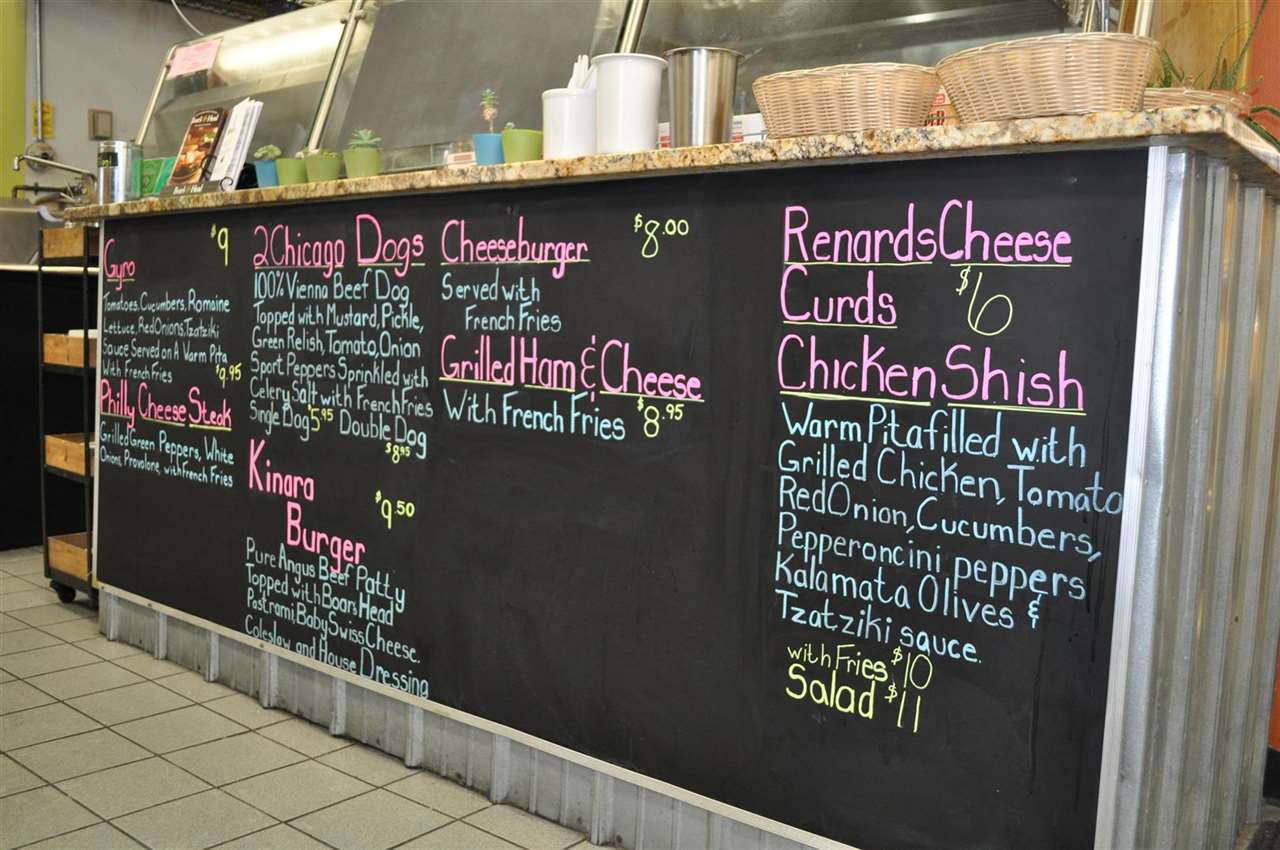 Gyro $9
Tomatoes, Cucumbers, Romaine
Lettuce, Red Onions, Tzatziki
Sauce Served on A Warm Pita
With French Fries $9.95
Philly Cheese Steak
Grilled Green Peppers, White
Onions, Provolone, with French Fries
2 Chicago Dogs
100% Vienna Beef Dog
Topped with Mustard, Pickle,
Green Relish, Tomato, Onion
Sport Peppers Sprinkled with
Celery Salt with French Fries
Single Dog $5.95 Double Dog
$8.95
Kinara $9.50
Burger
Pure Angus Beef Patty
Topped with Boars Head
Pastrami, Baby Swiss Cheese.
Coleslaw and House Dressing
Cheeseburger $8.00
Served with
French Fries
Grilled Ham & Cheese
With French Fries $8.95
Renards Cheese
Curds $6
Chicken Shish
Warm Pita filled with
Grilled Chicken, Tomato
Red Onion, Cucumbers,
Pepperoncini peppers
Kalamata Olives &
Tzatziki sauce.
with Fries $10
Salad $11